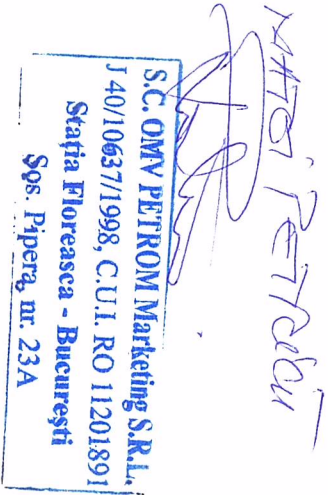 S.C. OMV PETROM Marketing S.R.L.
J 40/10637/1998, C.U.I. RO 11201891
Stația Floreasca - București
Șos. Pipera, nr. 23A